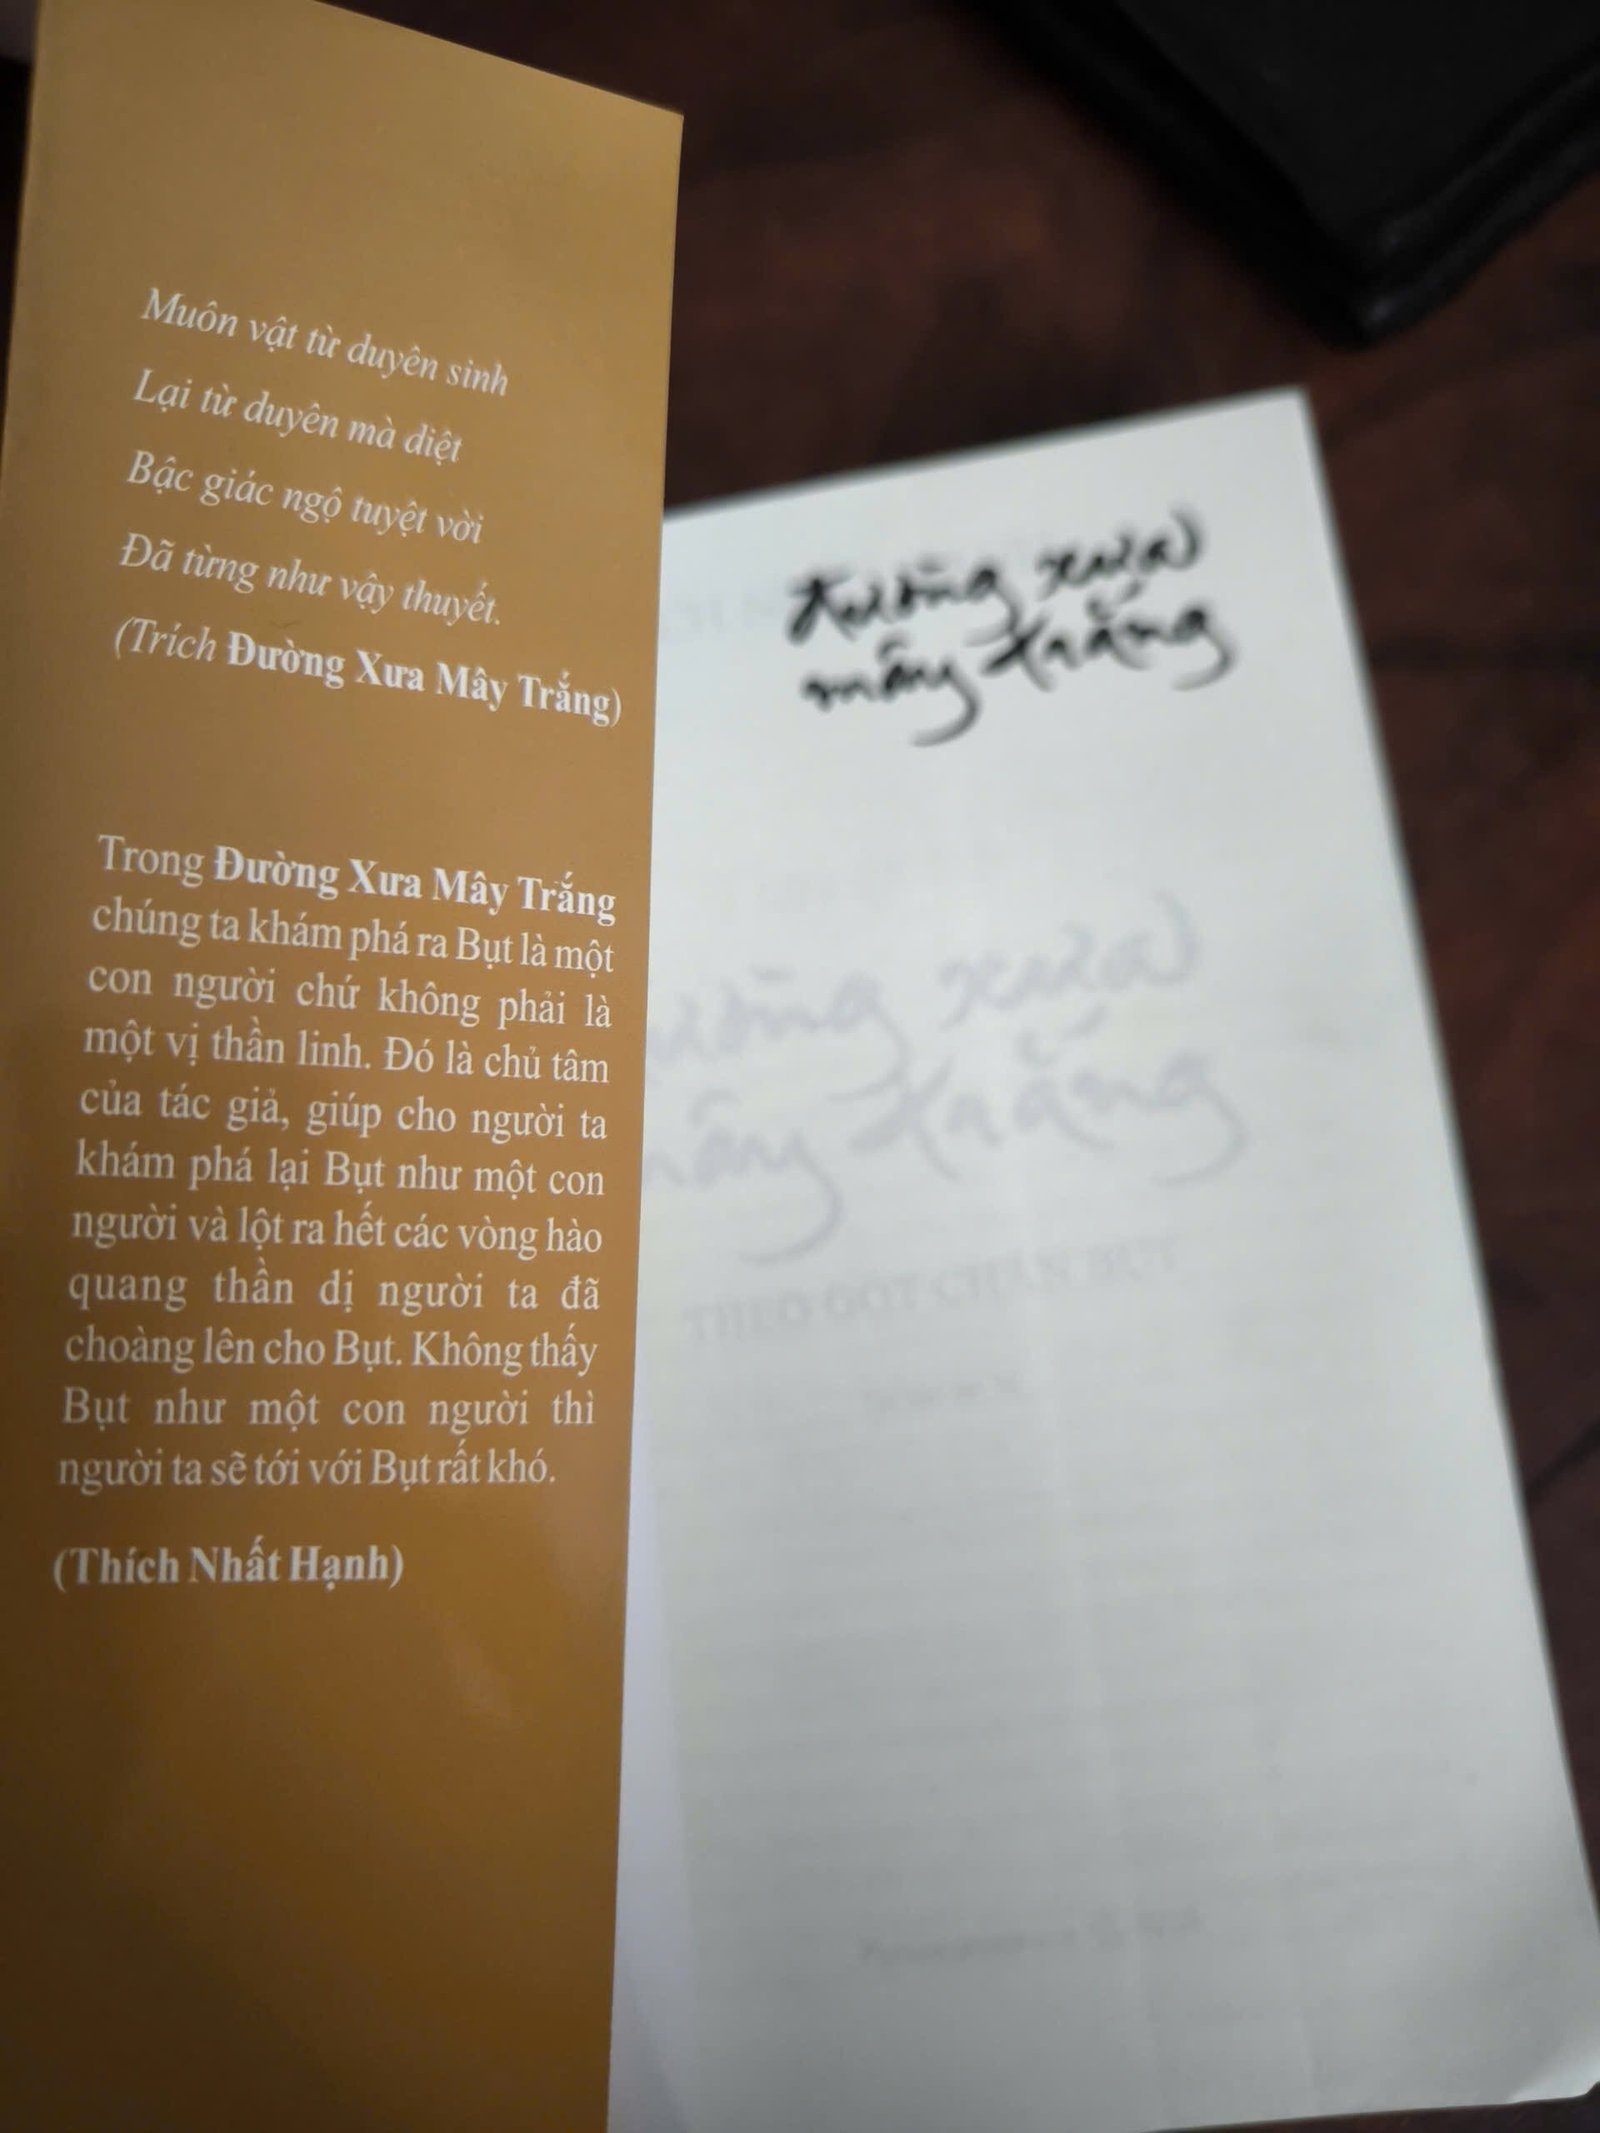 Muôn vật từ duyên sinh
Lại từ duyên mà diệt
Bậc giác ngộ tuyệt vời
Đã từng như vậy thuyết.
(Trích Đường Xưa Mây Trắng)
Trong Đường Xưa Mây Trắng
chúng ta khám phá ra Bụt là một
con người chứ không phải là
một vị thần linh. Đó là chủ tâm
của tác giả, giúp cho người ta
khám phá lại Bụt như một con
người và lột ra hết các vòng hào
quang thần dị người ta đã
choàng lên cho Bụt. Không thấy
Bụt như một con người thì
người ta sẽ tới với Bụt rất khó.
(Thích Nhất Hạnh)
đường xưa
mây trắng
đường xưa
mây trắng
THEO GÓT CHÂN BỤT